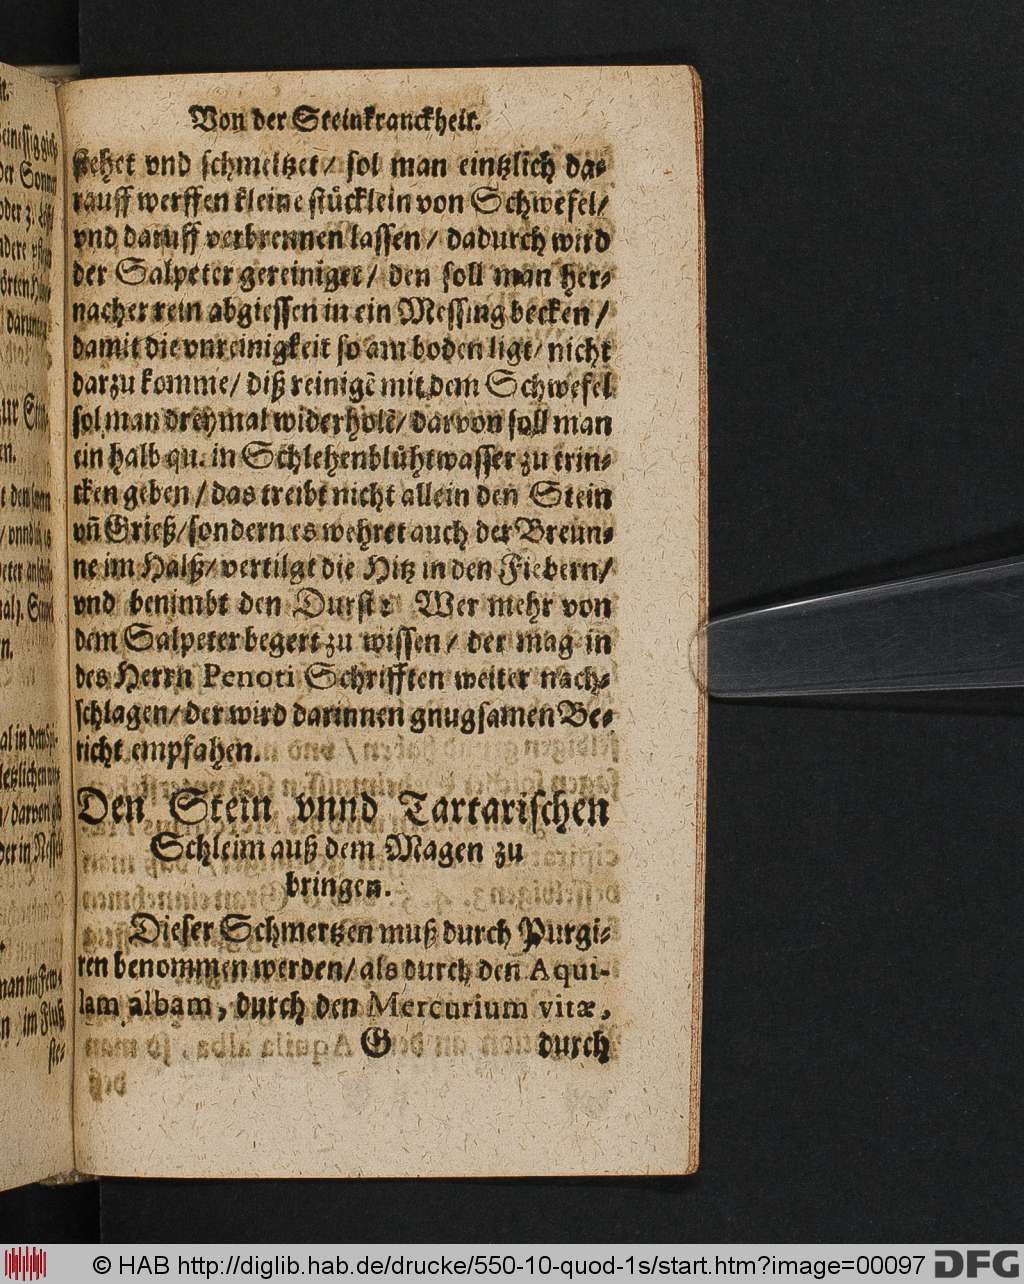 Von der Steinkranckheit.
stehet vnd schmeltzet/ sol man eintzlich da-
rauff werffen kleine stücklein von Schwefel/
vnd daruff verbrennen lassen/ dadurch wird
der Salpeter gereiniget/ den soll man her-
nacher rein abgiessen in ein Messing becken/
damit die vnreinigkeit so am boden ligt/ nicht
darzu komme/ diß reinigē mit dem Schwefel
sol man dreymal widerholē/ darvon soll man
ein halb qu. in Schlehenblühtwasser zu trin-
cken geben/ das treibt nicht allein den Stein
vñ Grieß/ sondern es wehret auch der Breun-
ne im Halß/ vertilgt die Hitz in den Fiebern/
vnd benimbt den Durst: Wer mehr von
dem Salpeter begert zu wissen/ der mag in
des Herrn Penoti Schrifften weiter nach-
schlagen/ der wird darinnen gnugsamen Be-
richt empfahen.
Den Stein vnnd Tartarischen
Schleim auß dem Magen zu
bringen.
Dieser Schmertzen muß durch Purgi-
ren benommen werden/ als durch den Aqui-
lam albam, durch den Mercurium vitæ,
G durch
© HAB http://diglib.hab.de/drucke/550-10-quod-1s/start.htm?image=00097 DFG